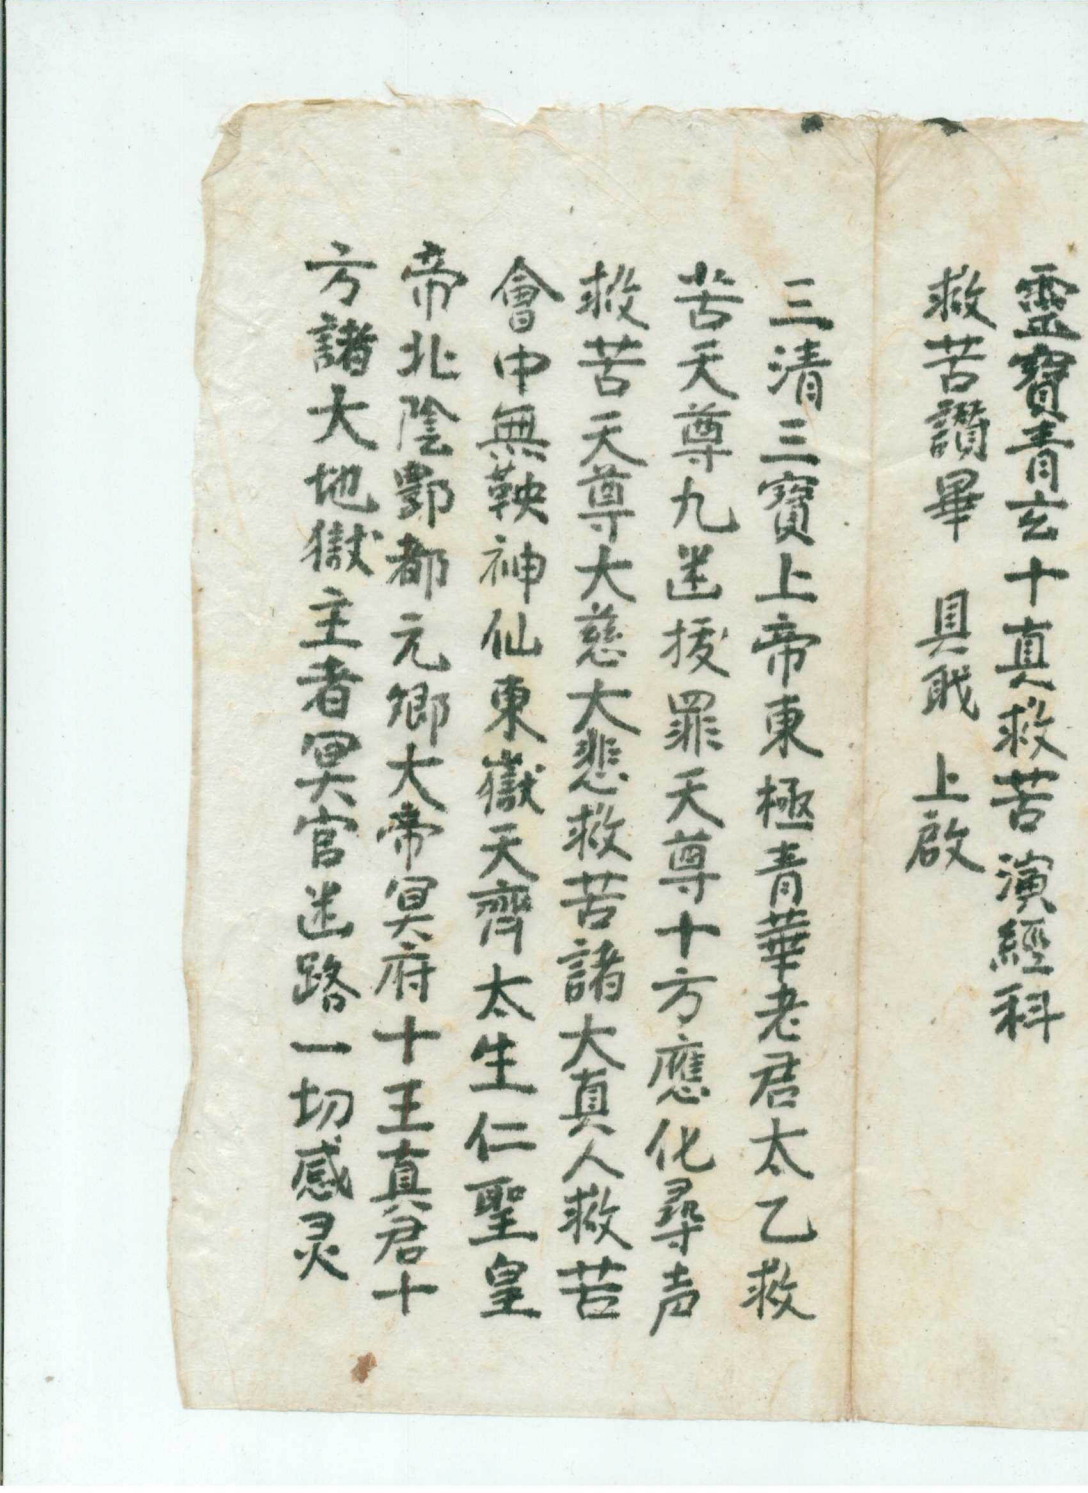 靈寶青玄十真救苦演經科
救苦讚畢　具職　上啟
三清三寶上帝東極青華老君太乙救
苦天尊九迷拔罪天尊十方應化尋声
救苦天尊大慈大悲救苦諸大真人救苦
會中無鞅神仙東嶽天齊太生仁聖皇
帝北陰酆都元卿大帝冥府十王真君十
方諸大地獄主者冥官迷路一切感灵